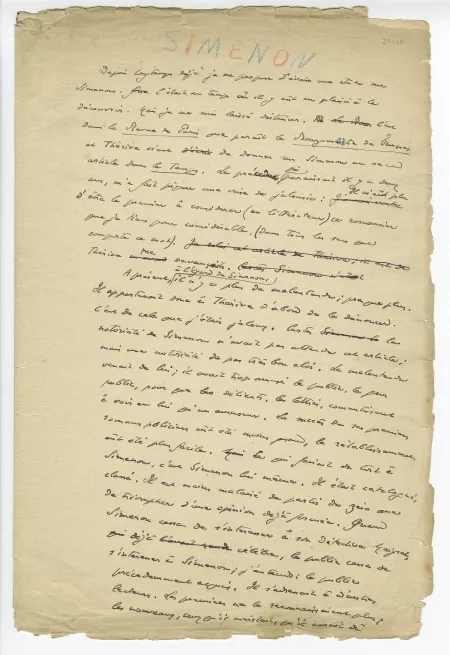 SIMENON
Depuis longtemps déjà je me propose d'écrire une étude sur
Simenon. C'était un temps où il y eût eu plaisir à le
découvrir. Que je me suis laissé distancer.
dans la Revue de Paris que paraît le Bourgmestre de Furnes
et Thérive vient de donner sur Simenon un second
article dans le Temps. Le précédent, qui paraissait il y a deux
ans, m'a fait piquer une crise de jalousie : Il m'eût plu
d'être le premier à considérer (en littérateur) ce romancier
que je tiens pour considérable (dans tous les sens que
comporte ce mot).
Thérive me devançait.
à l'égard de Simenon,
A présent il n'y a plus de malentendu; presque plus.
Il appartenait donc à Thérive d'abord de le dénoncer.
C'est de cela que j'étais jaloux. Certes la
notoriété de Simenon n'avait pas attendu cet article;
mais une notoriété de pas très bon aloi. Le malentendu
venait de lui; il avait trop amusé le public, le gros
public, pour que les délicats, les lettrés, consentissent
à voir en lui qu'un amuseur. Le succès de ses premiers
romans policiers eût été moins grand, le rétablissement
eût été plus facile. Ce qui faisait du tort à
Simenon, c'est Simenon lui même. Il était catalogué,
classé. Il est moins malaisé de partir de zéro que
de triompher d'une opinion déjà formée. Quand
Simenon cessa de s'intéresser à son détective Maigret,
déjà célèbre, le public cessa de
s'intéresser à Simenon; j'entends : le public
précédemment acquis. Il s'adressait à d'autres
lecteurs. Les premiers ne le reconnaissaient plus;
les nouveaux, ceux qu'il méritait, qu'il aurait dû